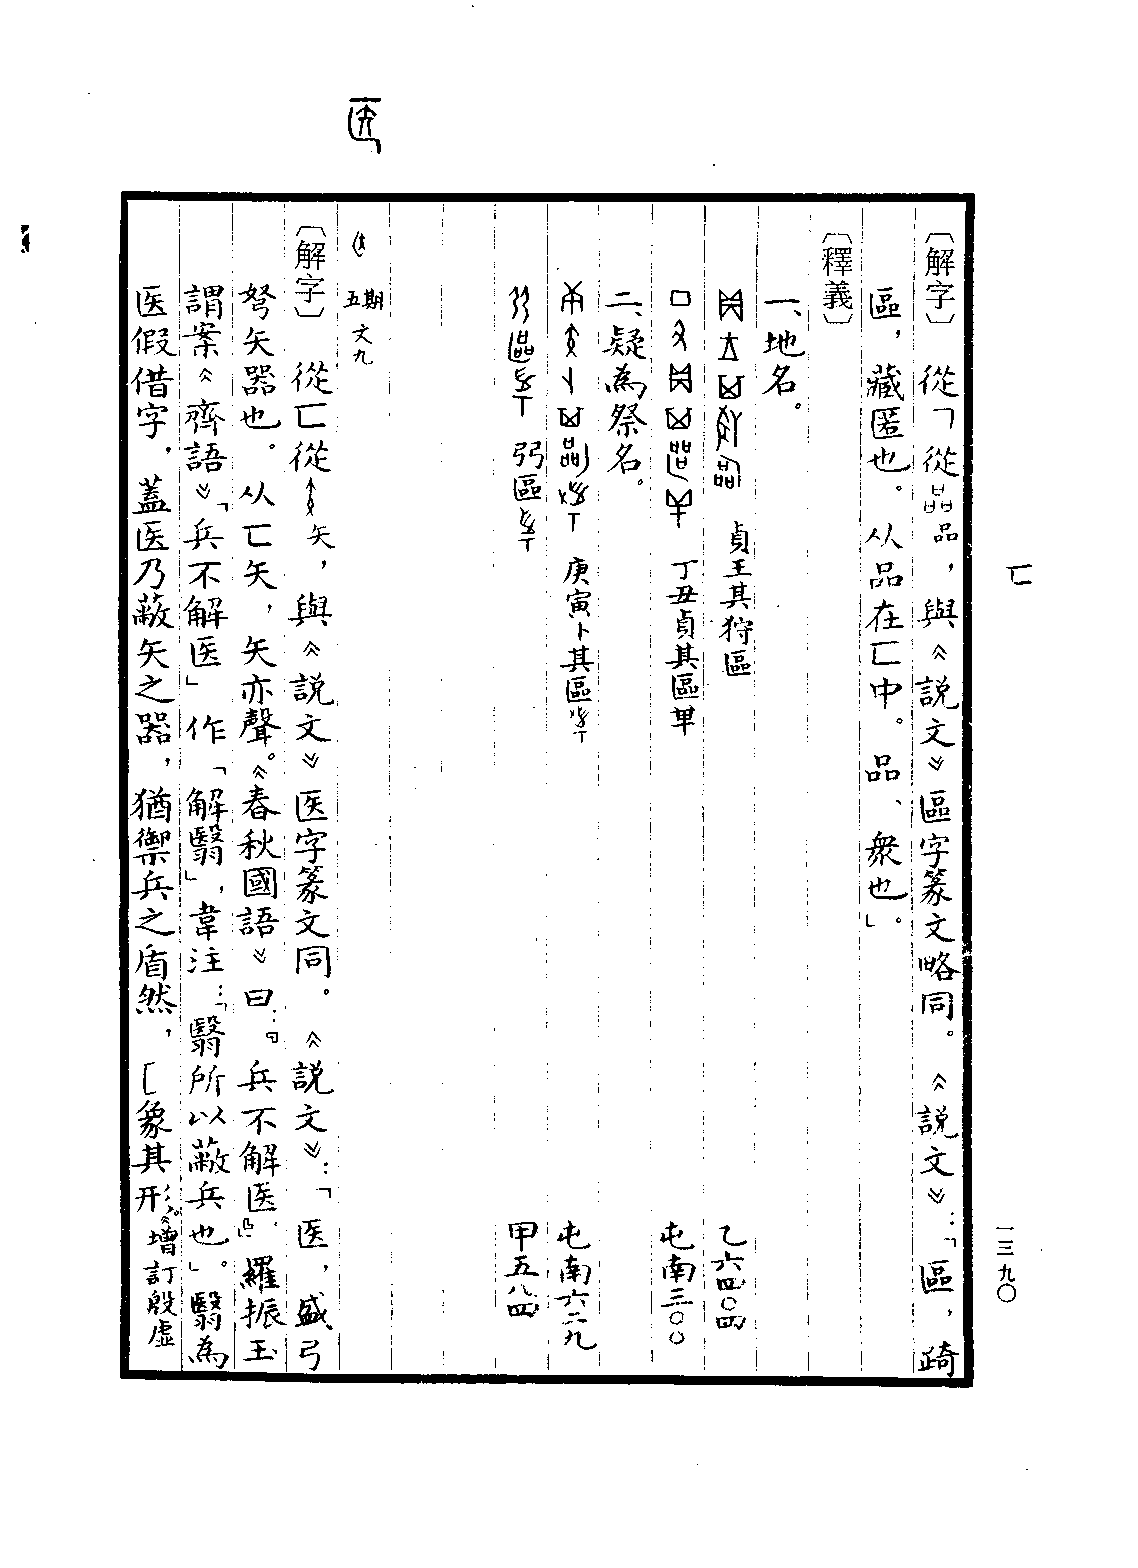 匚
一三九〇
〔解字〕從㇕從品，與《說文》區字篆文略同。《說文》：「區，踦
區，藏匿也。从品在匚中。品、衆也」。
〔釋義〕
一、地名。
貞王其狩區 乙六四〇四
丁丑貞其區 屯南三〇〇
二、疑為祭名。
庚寅卜其區 屯南六二九
弜區 甲五八四
医
五期 文九
〔解字〕從匚從矢，與《說文》医字篆文同。《說文》：「医，盛弓
弩矢器也。从匚矢，矢亦聲。《春秋國語》曰：『兵不解医』」。羅振玉
謂案《齊語》「兵不解医」作「解翳」，韋注：「翳所以蔽兵也。」翳為
医假借字，蓋医乃蔽矢之器，猶禦兵之盾然，匚象其形。《增訂殷虛